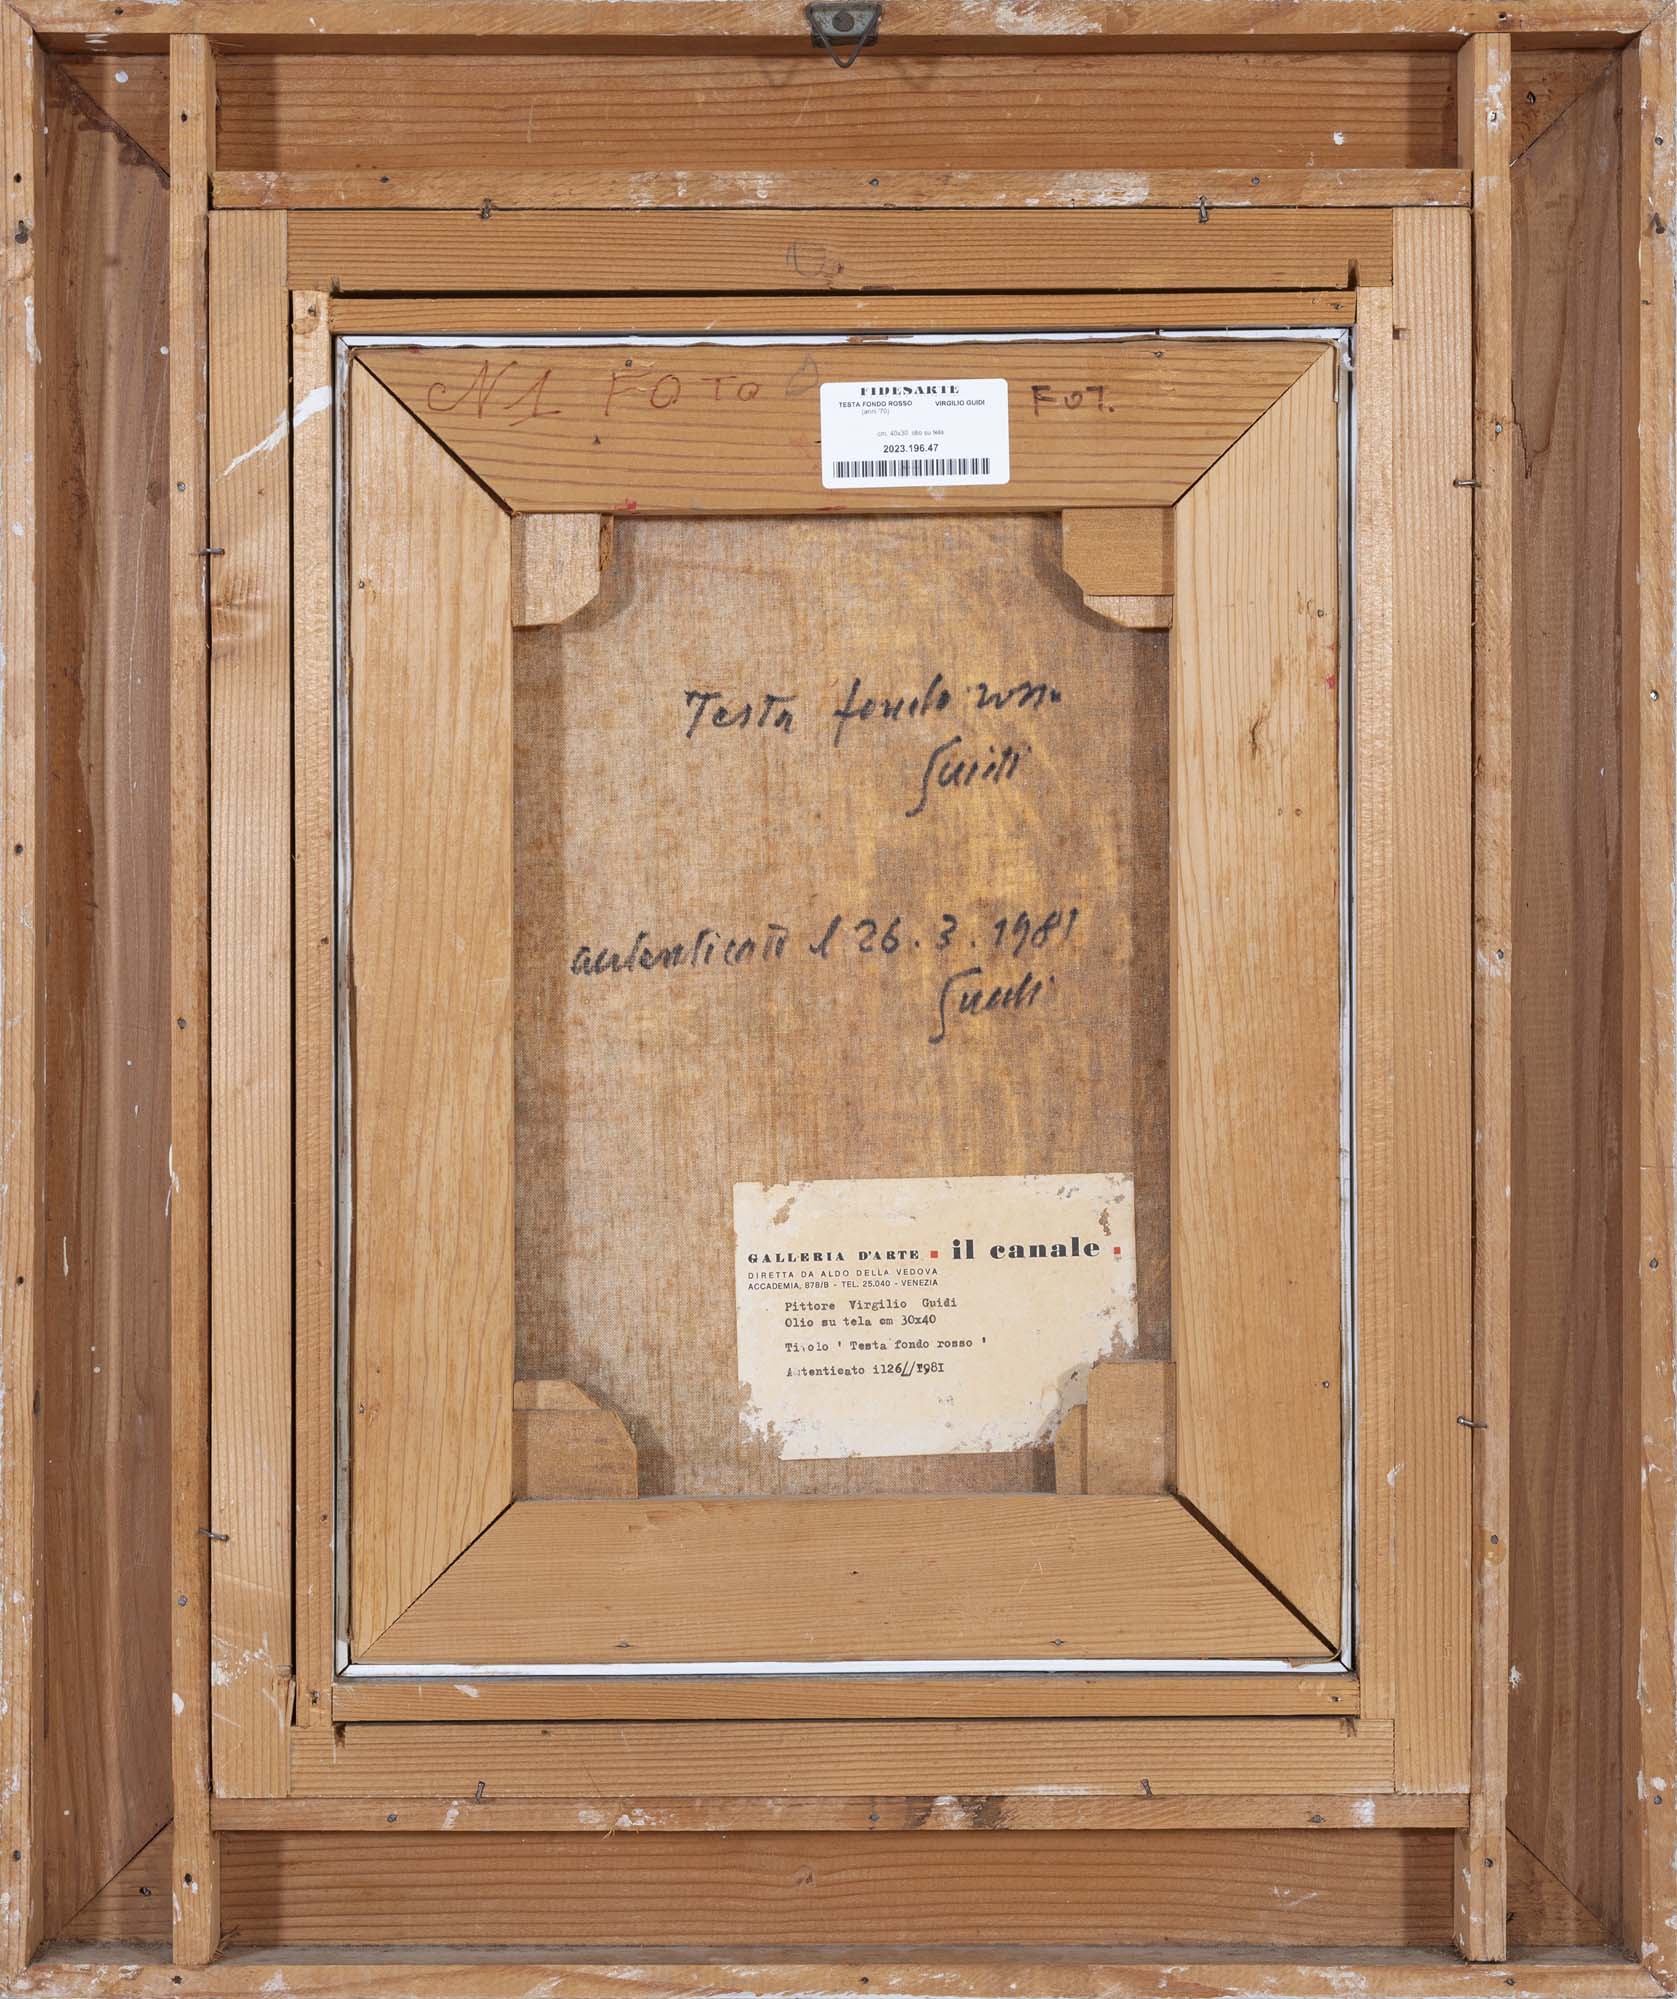 N1 FOTO
FOT.
FIDESARTE
TESTA FONDO ROSSO VIRGILIO GUIDI
(anni '70)
cm. 40x30 olio su tela
2023.196.47
Testa fondo rosso
Guidi
autenticato il 26.3.1981
Guidi
GALLERIA D'ARTE ▪ il canale ▪
DIRETTA DA ALDO DELLA VEDOVA
ACCADEMIA, 878/B - TEL. 25.040 - VENEZIA
Pittore Virgilio Guidi
Olio su tela cm 30x40
Titolo ' Testa fondo rosso '
Autenticato il26//I98I